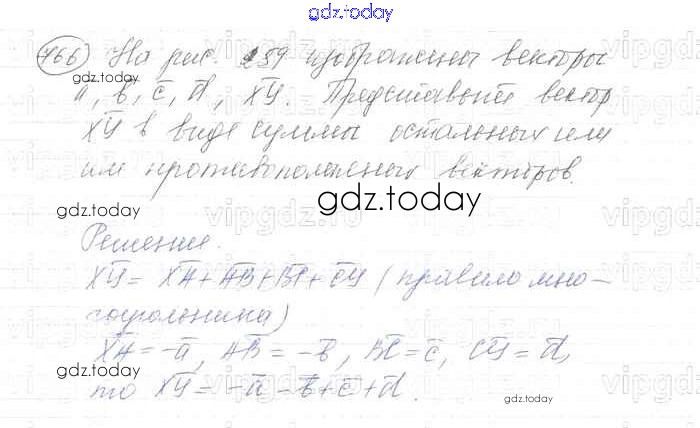 gdz.today
766) На рис. 259 изображены векторы
gdz.today
a̅, b̅, c̅, d̅, X̅Y̅. Представьте вектор
X̅Y̅ в виде суммы остальных или
им противоположных векторов.
gdz.today
gdz.today
gdz.today
Решение.
X̅Y̅ = X̅A̅ + A̅B̅ + B̅C̅ + C̅Y̅ (правило мно-
гоугольника)
X̅A̅ = -a̅, A̅B̅ = -b̅, B̅C̅ = c̅, C̅Y̅ = d̅,
gdz.today
то X̅Y̅ = -a̅ - b̅ + c̅ + d̅.
gdz.today